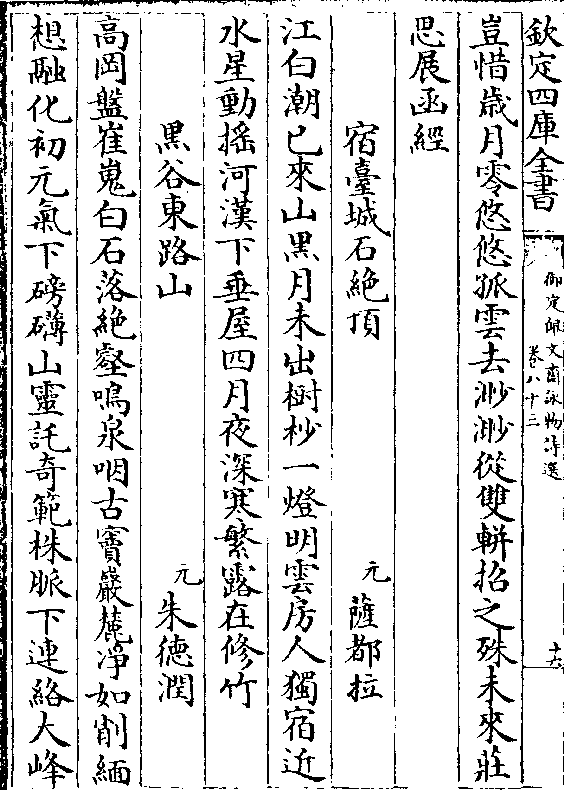 欽定四庫全書
御定佩文齋詠物詩選
卷八十三
十六
豈惜歲月零悠悠孤雲去渺渺從雙輧招之殊未來莊
思展函經
宿臺城石絶頂
元
薩都拉
江白潮已來山黑月未出樹杪一燈明雲房人獨宿近
水星動搖河漢下垂屋四月夜深寒繁露在修竹
黒谷東路山
元
朱德潤
高岡盤崔嵬白石落絶壑鳴泉咽古竇巖麓凈如削緬
想融化初元氣下磅礴山靈託奇範株脈下連絡大峰